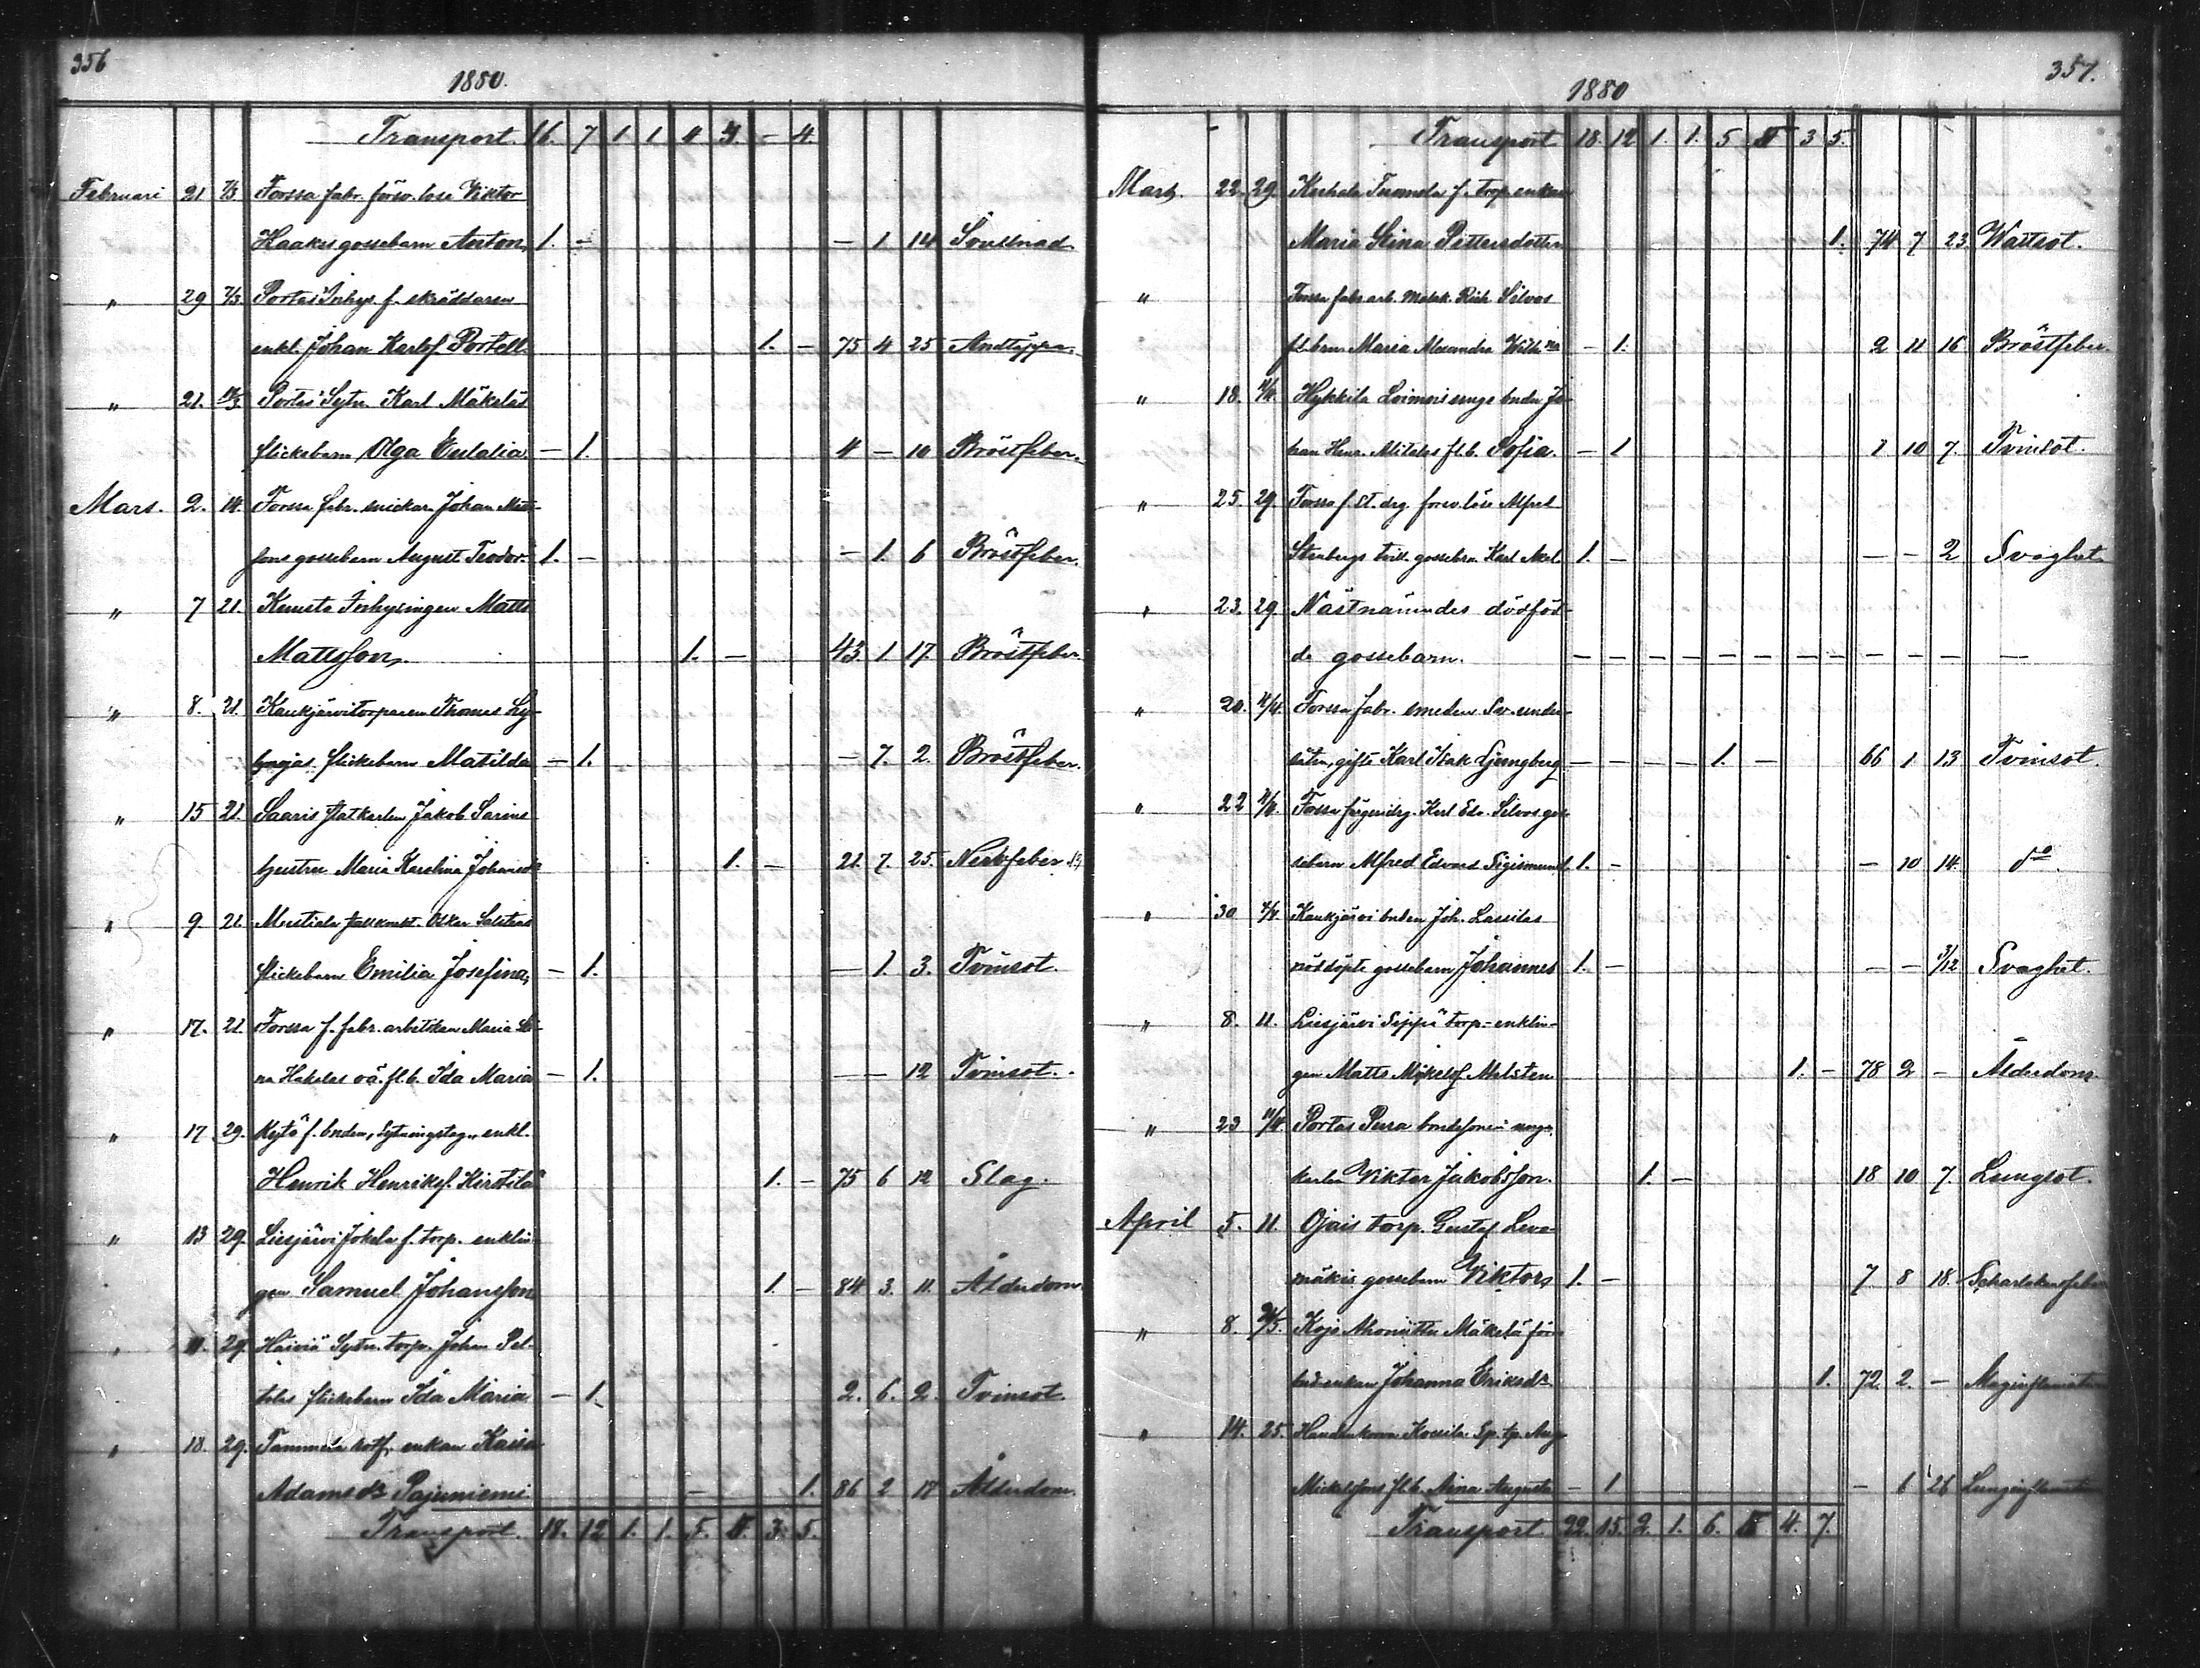 356
1880.
Transport. 16. 7 1 1 4 3. - 4.
Februari 21 7/3 Forssa fabr. försv. löse Viktor
Haakis gossebarn Anton, 1. - - 1 14
" 29 7/3 Portas Inhys f. skräddaren
enkl. Johan Karlsf. Portell. 1. - 75 4 25 Andtäppa.
" 21. Portas Sytn. Karl Mäkeläs
flickebarn Olga Eulalia. - 1. 4 - 10 Bröstfeber.
Mars. 2. 14. Forssa fabr. snickar. Johan Matt-
sons gossebarn August Teodor. 1. - - 1. 6 Bröstfeber.
" 7 21. Inhysingen Matts
Mattsson, 1. - 43 1 17. Bröstfeber.
" 8. 21. Kaukjärvi torparen Thomas
flickebarn Matilda - 1. - 7. 2. Bröstfeber.
" 15 21. Saaris statkarlen Jakob Sarins
hustru Maria Karolina Johansdr 1. - 21. 7. 25. Nervfeber
" 9 21. Mustiala Oskar
flickebarn Emilia Josefina, - 1. - 1. 3. Tvinsot.
" 17. 21. Forssa f. fabr. arbetskan Maria Sti-
na Hakalas oä. fl.b. Ida Maria - 1. - - 12 Tvinsot.
" 17 29. f. bnden, Sytningstag., enkl.
Henrik Henriksf. Kirstilä 1. - 75 6 12 Slag.
" 13 29. Liesjärvi Jokela f. torp. enklin-
gen Samuel Johansson 1. - 84 3. 11. Ålderdom.
" 11. 29. Sytn. torp. Johan Pel-
tolas flickebarn Ida Maria - 1. 2. 6. 2. Tvinsot.
" 18. 29. Tammela rotf. enkan Kaisa
Adamsdr Pajuniemi - 1. 86 2 17 Ålderdom.
Transport. 18. 12 1. 1. 5. 4. 3. 5.
357.
1880
Transport 18. 12 1. 1. 5 4 3 5.
Mars. 22. 29. Tuomola f. torp. enkan
Maria Stina Pettersdotter 1. 74 7 23. Wattsot.
" Forssa fabr. arb. Silvos
fl.barn Maria Alexandra - 1. 2 11 16 Bröstfeber.
" 18. 11/4. Hykkilä bnden Jo-
han Henr. fl.b. Sofia. - 1 1 10 7. Tvinsot.
" 25. 29. Forssa f. St. drg. försv. löse Alfred
Stenbergs tvill. gossebrn. Karl Axel 1. - - - 2 Svaghet.
" 23. 29 Nästnämndes dödföd-
de gossebarn. - - - - - - - - - - - -
" 20. 11/4. Forssa fabr. smeden Sv. under-
såten, gifte Karl Isak Ljungberg - - - - 1. - 66 1 13 Tvinsot.
" 22 11/4. Forssa Karl Edv. Silvos gos-
sebarn Alfred Edvard Sigismund 1. - - 10 14. do
" 30 Kaukjärvi bnden Joh. Lassilas
nöddöpte gossebarn Johannes 1. - - - 3/12 Svaghet.
" 8. 11. Liesjärvi Seppä torp.-enklin-
gen Matts 1. - 78 2 - Ålderdom.
" 23 11/4. Portas bondesonen unge
karlen Viktor Jakobsson. 1. - 18 10 7. Lungsot.
April 5. 11. Ojais torp. Gustaf Leva-
mäkis gossebarn Viktor, 1. - 7 8 18. Scharlakansfeber
" 8. Ahoniittu Mäkelä
enkan Johanna Eriksdr 1. 72. 2. -
" 14. 25. Sp. tp. Aug.
Mickelssons fl.b. Nina Augusta - 1 - 6 26
Transport 22. 15. 2. 1. 6. 4. 4. 7.